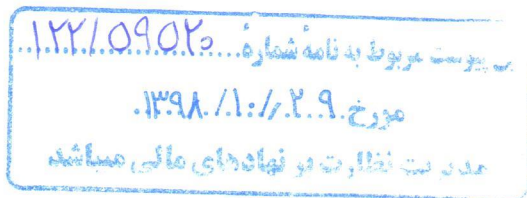 پیوست مربوط به نامه شماره ۱۲۲/۵۹۵۲۰
مورخ ۱۳۹۸/۱۰/۲۹
مدیریت نظارت بر نهادهای مالی میباشد